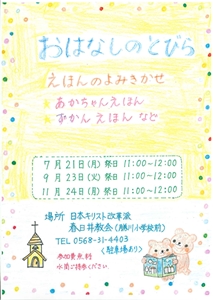 おはなしのとびら
えほんのよみきかせ
あかちゃんえほん
ずかんえほん など
7月21日(月)祭日 11:00~12:00
9月23日(火)祭日 11:00~12:00
11月24日(月)祭日 11:00~12:00
場所 日本キリスト改革派
春日井教会(勝川小学校前)
TEL 0568-31-4403
(駐車場あり)
参加費無料
水筒ご持参ください